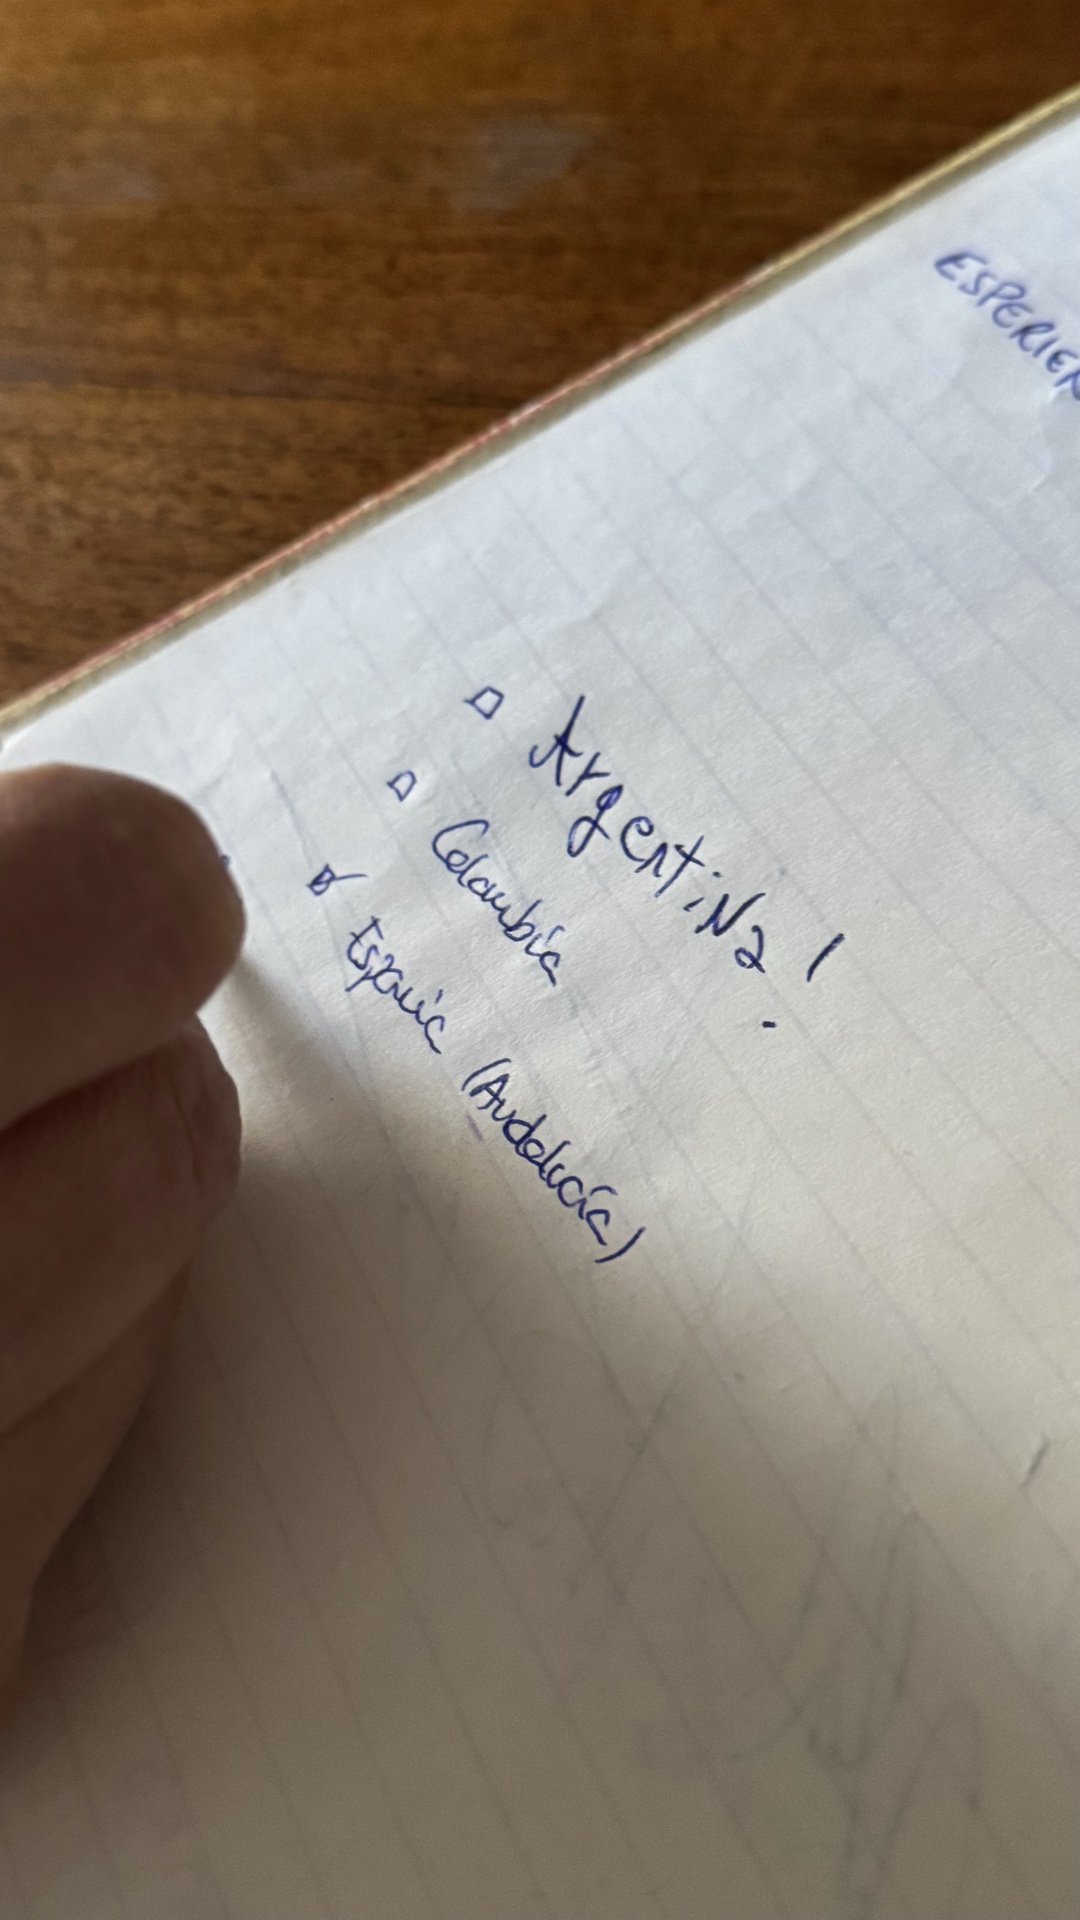 ESPERIEN
□ Argentina!
□ Colombia
☑ Espania (Andalucía)